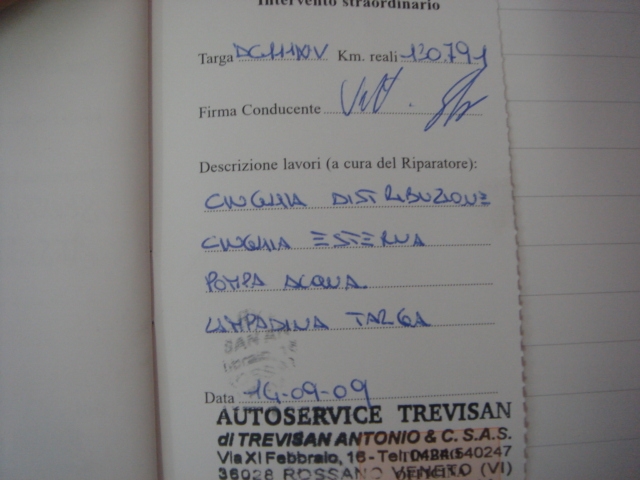 Intervento straordinario
Targa DC111XV Km. reali 120.791
Firma Conducente
Descrizione lavori (a cura del Riparatore):
CINGHIA DISTRIBUZIONE
CINGHIA ESTERNA
POMPA ACQUA
LAMPADINA TARGA
Data 14-09-09
AUTOSERVICE TREVISAN
di TREVISAN ANTONIO & C. S.A.S.
Via XI Febbraio, 16 - Tel. 0424 540247
36028 ROSSANO VENETO (VI)